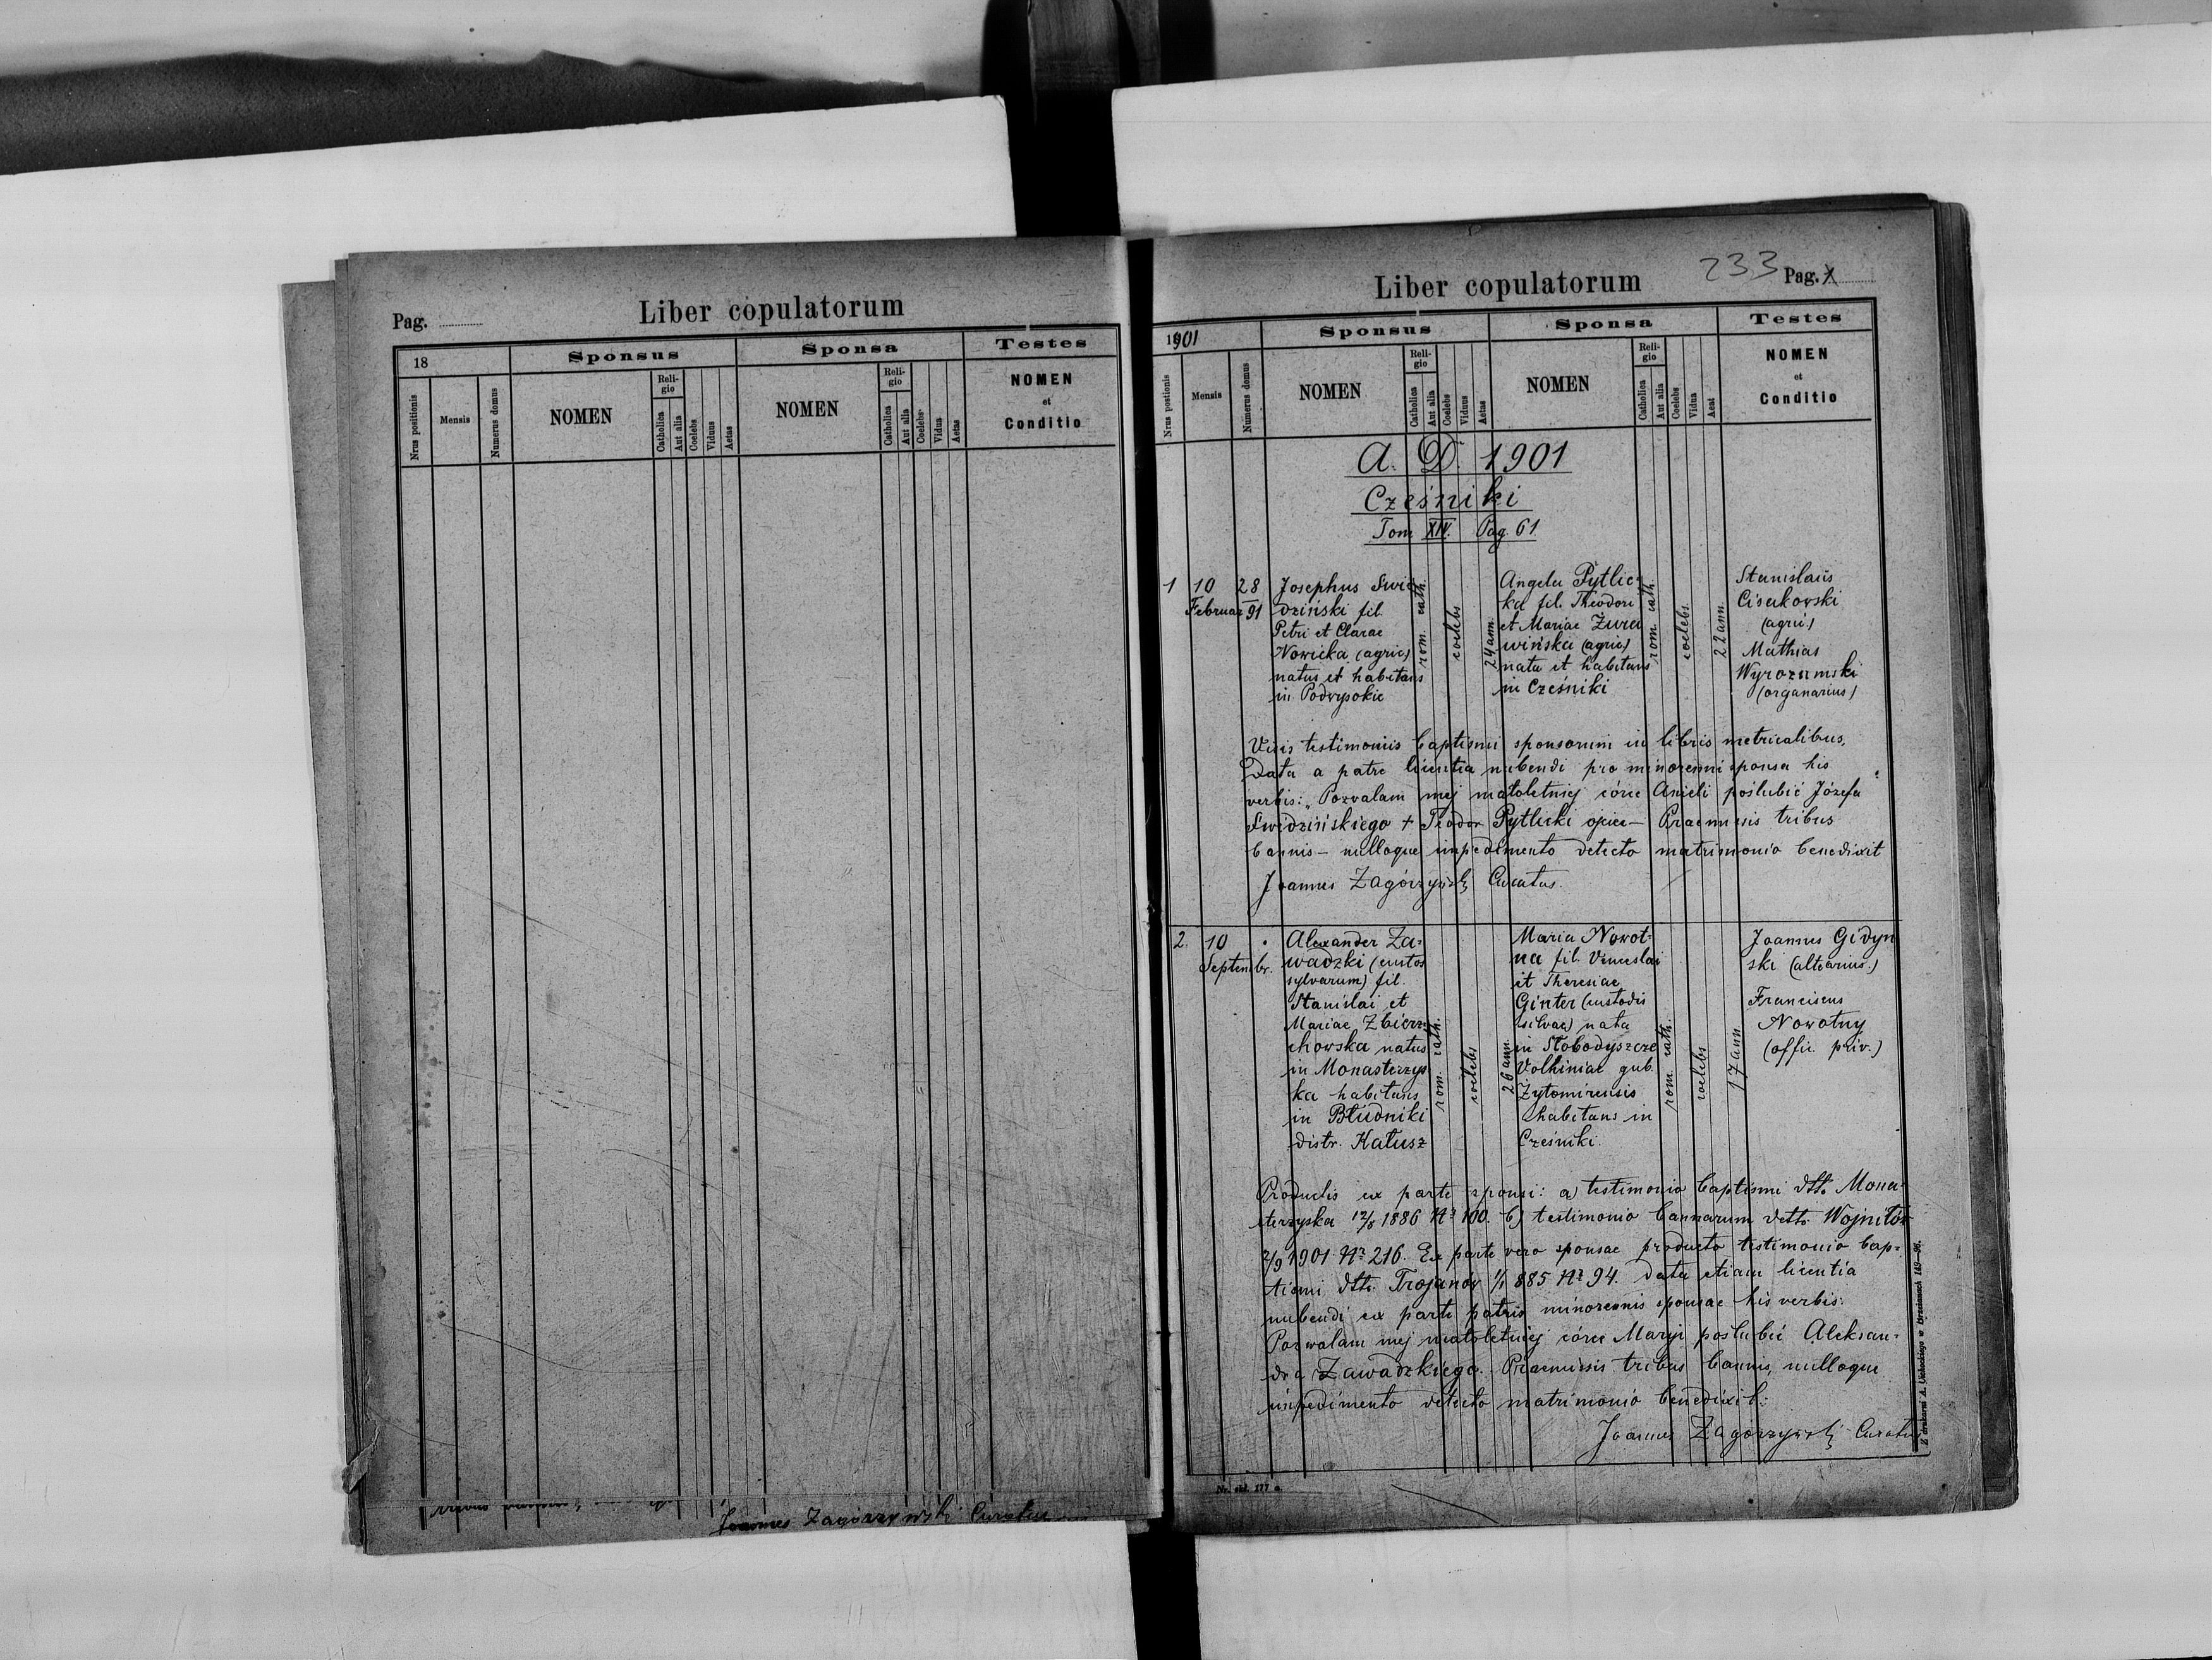 Pag.
Liber copulatorum
18
Sponsus
Sponsa
Testes
Nrus positionis
Mensis
Numerus domus
NOMEN
Religio
Catholica
Aut alia
Coelebs
Viduus
Aetas
NOMEN
Religio
Catholica
Aut alia
Coelebs
Vidua
Aetas
NOMEN
et
Conditio
Joannes Zagórzyński Curatus
Liber copulatorum
233
Pag.
1901
Sponsus
Sponsa
Testes
Nrus positionis
Mensis
Numerus domus
NOMEN
Religio
Catholica
Aut alia
Coelebs
Viduus
Aetas
NOMEN
Religio
Catholica
Aut alia
Coelebs
Vidua
Aeat
NOMEN
et
Conditio
A. D. 1901
Cześniki
Tom XIV. Pag. 61
1
10
Februar
28
91
Josephus Swi-
dziński fil.
Petri et Clarae
Nowicka (agric)
natus et habitans
in Podwysokie
rom. cath.
coelebs
24 ann.
Angela Pytlic-
ka fil. Theodori
et Mariae Żura
wińska (agric)
nata et habitans
in Cześniki
rom. cath.
coelebs.
22 ann.
Stanislaus
Cisakowski
(agric.)
Mathias
Wyrozumski
(organarius)
Visis testimoniis baptismi sponsorum in libris metricalibus,
Data a patre licentia nubendi pro minorenni sponsa his
verbis: „Pozwalam mej małoletniej córce Anieli poślubić Józefa
Swidzińskiego + Teodor Pytlicki ojciec — Praemissis tribus
bannis — nulloque impedimento detecto matrimonio benedixit
Joannes Zagórzyński Curatus.
2.
10
Septembr.
Alexander Za-
wadzki (custos
sylvarum) fil.
Stanislai et
Mariae Zbierz-
chowska natus
in Monasterzys
ka habitans
in Błudniki
distr. Kałusz
rom. cath.
coelebs
26 ann.
Maria Nowot-
na fil. Venceslai
et Theresiae
Ginter (custodis
silvae) nata
in Słobodyszcze
Volhiniae gub.
Żytomirensis
habitans in
Cześniki.
rom. cath.
coelebs
17 ann
Joannes Gidyn
ski (altarius.)
Franciscus
Nowotny
(offic. priv.)
Productis ex parte sponsi: a) testimonio baptismi dtto. Mona-
sterzyska 12/8 1886 No 100. b) testimonio bannarum detto Wojniłów
2/9 1901 No 216. Ex parte vero sponsae producto testimonio bap-
tismi dtto. Trojanów 1/1 885 No 94. data etiam licentia
nubendi ex parte patris minorennis sponsae his verbis:
Pozwalam mej małoletniej córce Maryi poślubić Aleksan-
dra Zawadzkiego. Praemissis tribus bannis, nulloque
impedimento detecto matrimonio benedixit:
Joannes Zagórzyński Curatus
Nr. skł. 177 a.